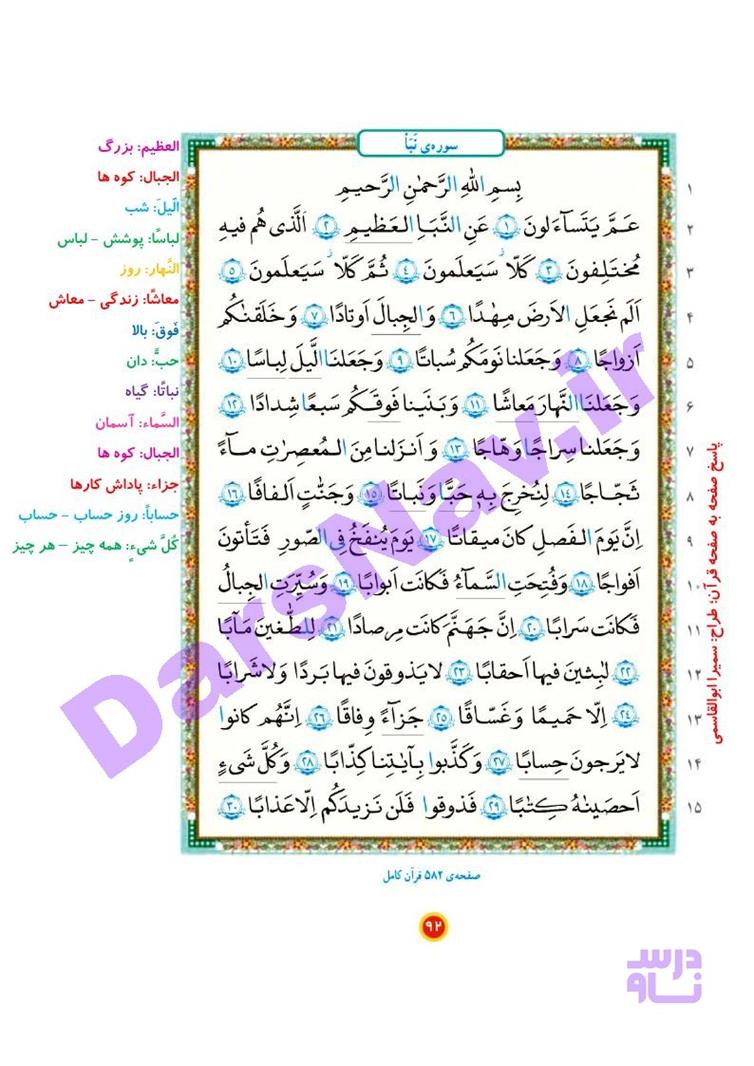 سوره‌ی نَبَأ
بِسمِ اللّٰهِ الرَّحمٰنِ الرَّحیمِ
عَمَّ یَتَساءَلونَ ﴿۱﴾ عَنِ النَّبَاِ العَظیمِ ﴿۲﴾ اَلَّذی هُم فیهِ
مُختَلِفونَ ﴿۳﴾ کَلّا سَیَعلَمونَ ﴿۴﴾ ثُمَّ کَلّا سَیَعلَمونَ ﴿۵﴾
اَلَم نَجعَلِ الاَرضَ مِهٰدًا ﴿۶﴾ وَ الجِبالَ اَوتادًا ﴿۷﴾ وَ خَلَقنٰکُم
اَزواجًا ﴿۸﴾ وَ جَعَلنا نَومَکُم سُباتًا ﴿۹﴾ وَ جَعَلنَا الَّیلَ لِباسًا ﴿۱۰﴾
وَ جَعَلنَا النَّهارَ مَعاشًا ﴿۱۱﴾ وَ بَنَینا فَوقَکُم سَبعًا شِدادًا ﴿۱۲﴾
وَ جَعَلنا سِراجًا وَهّاجًا ﴿۱۳﴾ وَ اَنزَلنا مِنَ المُعصِرٰتِ ماءً
ثَجّاجًا ﴿۱۴﴾ لِنُخرِجَ بِهٖ حَبًّا وَ نَباتًا ﴿۱۵﴾ وَ جَنّٰتٍ اَلفافًا ﴿۱۶﴾
اِنَّ یَومَ الفَصلِ کانَ میقاتًا ﴿۱۷﴾ یَومَ یُنفَخُ فِی الصّورِ فَتَأتونَ
اَفواجًا ﴿۱۸﴾ وَ فُتِحَتِ السَّماءُ فَکانَت اَبوابًا ﴿۱۹﴾ وَ سُیِّرَتِ الجِبالُ
فَکانَت سَرابًا ﴿۲۰﴾ اِنَّ جَهَنَّمَ کانَت مِرصادًا ﴿۲۱﴾ لِلطّٰغینَ مَآبًا
﴿۲۲﴾ لٰبِثینَ فیها اَحقابًا ﴿۲۳﴾ لا یَذوقونَ فیها بَردًا وَ لا شَرابًا
﴿۲۴﴾ اِلّا حَمیمًا وَ غَسّاقًا ﴿۲۵﴾ جَزاءً وِفاقًا ﴿۲۶﴾ اِنَّهُم کانوا
لا یَرجونَ حِسابًا ﴿۲۷﴾ وَ کَذَّبوا بِآیاتِنا کِذّابًا ﴿۲۸﴾ وَ کُلَّ شَیءٍ
اَحصَینٰهُ کِتٰبًا ﴿۲۹﴾ فَذوقوا فَلَن نَزیدَکُم اِلّا عَذابًا ﴿۳۰﴾
۱
۲
۳
۴
۵
۶
۷
۸
۹
۱۰
۱۱
۱۲
۱۳
۱۴
۱۵
العظیم: بزرگ
الجبال: کوه ها
الَّیلَ: شب
لباسًا: پوشش – لباس
النَّهار: روز
معاشًا: زندگی – معاش
فَوقَ: بالا
حبًّ: دان
نباتًا: گیاه
السَّماء: آسمان
الجبال: کوه ها
جزاء: پاداش کارها
حساباً: روز حساب – حساب
کُلَّ شیءٍ: همه چیز – هر چیز
پاسخ صفحه به صفحه قرآن: طراح: سمیرا ابوالقاسمی
صفحه‌ی ۵۸۲ قرآن کامل
۹۲
DarsNav.ir
درس
ناو